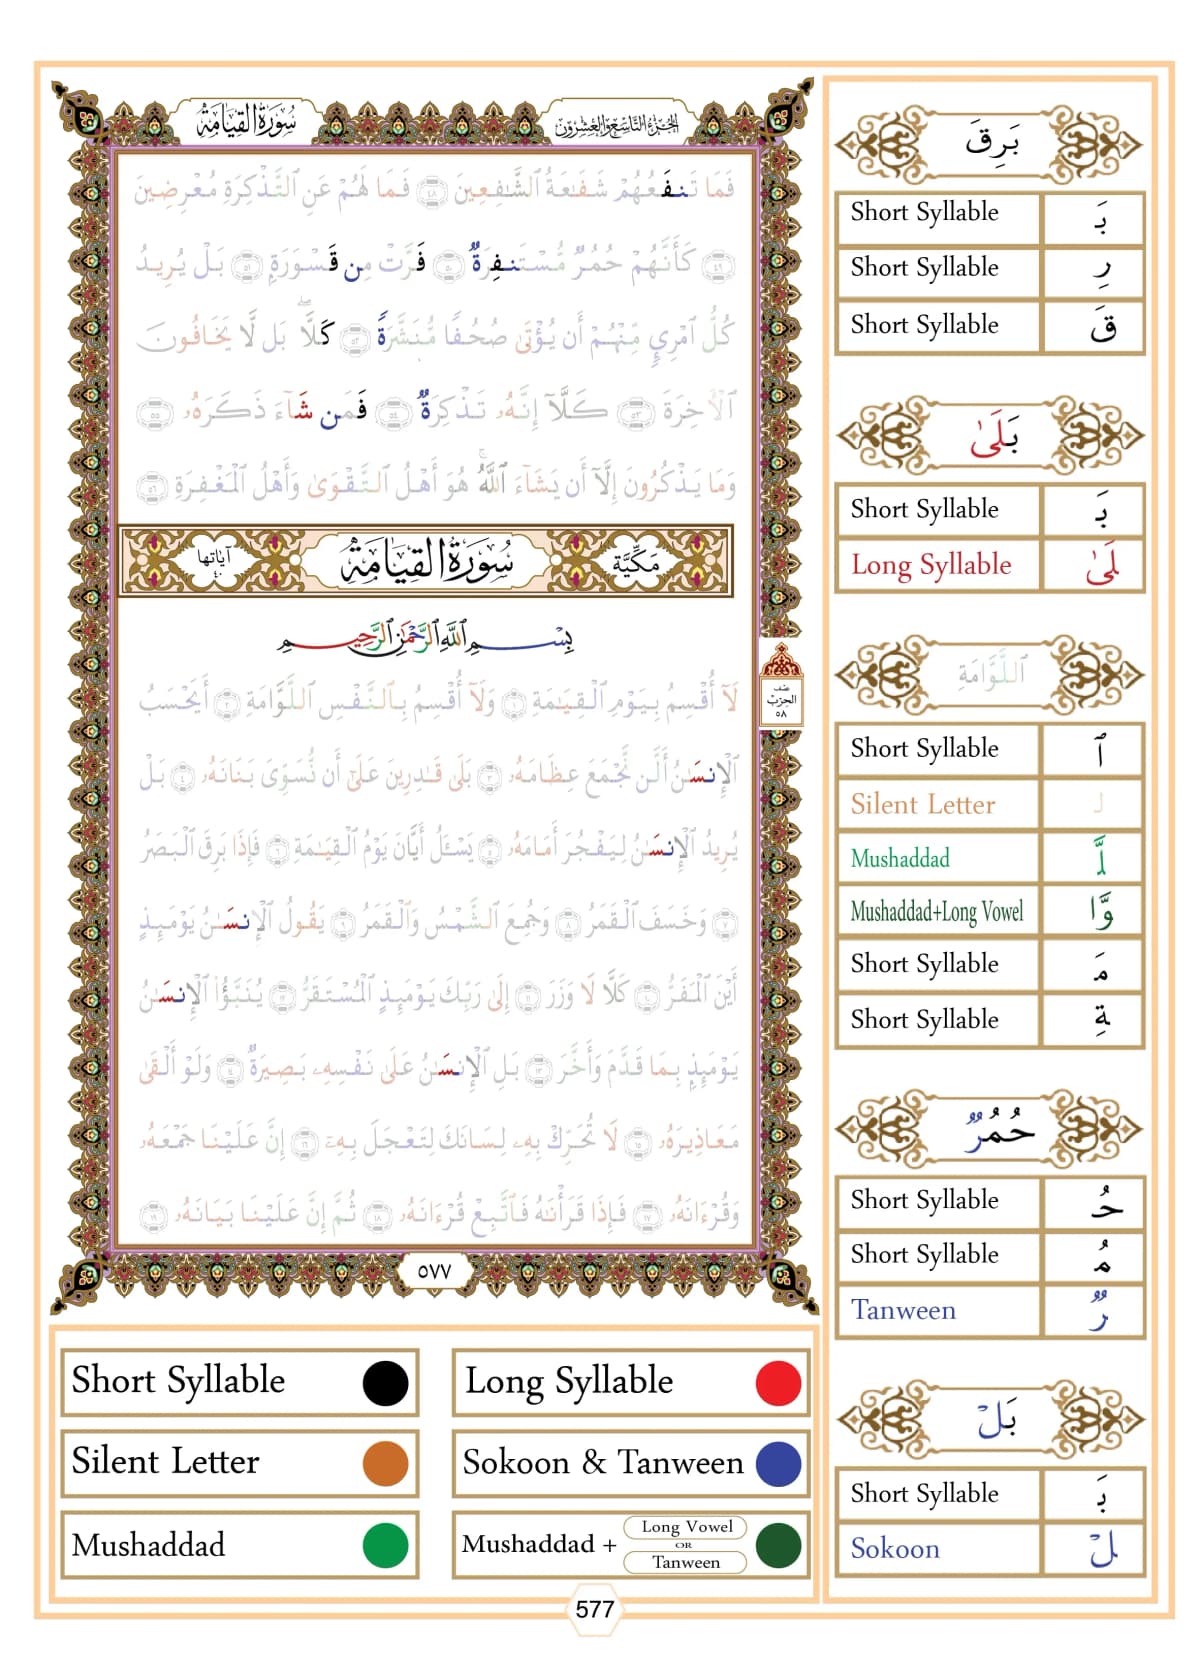 سُورَةُ القِيَامَةِ
الجُزءُ التَّاسِعُ وَالعِشْرُونَ
فَمَا تَنفَعُهُمْ شَفَـٰعَةُ ٱلشَّـٰفِعِينَ ٤٨ فَمَا لَهُمْ عَنِ ٱلتَّذْكِرَةِ مُعْرِضِينَ
٤٩ كَأَنَّهُمْ حُمُرٌ مُّسْتَنفِرَةٌ ٥٠ فَرَّتْ مِن قَسْوَرَةٍ ٥١ بَلْ يُرِيدُ
كُلُّ ٱمْرِئٍ مِّنْهُمْ أَن يُؤْتَىٰ صُحُفًا مُّنَشَّرَةً ٥٢ كَلَّا ۖ بَل لَّا يَخَافُونَ
ٱلْـَٔاخِرَةَ ٥٣ كَلَّآ إِنَّهُۥ تَذْكِرَةٌ ٥٤ فَمَن شَآءَ ذَكَرَهُۥ ٥٥
وَمَا يَذْكُرُونَ إِلَّآ أَن يَشَآءَ ٱللَّهُ ۚ هُوَ أَهْلُ ٱلتَّقْوَىٰ وَأَهْلُ ٱلْمَغْفِرَةِ ٥٦
مَكِّيَّة
سُورَةُ القِيَامَةِ
آياتها ٤٠
بِسْمِ ٱللَّهِ ٱلرَّحْمَـٰنِ ٱلرَّحِيمِ
لَآ أُقْسِمُ بِيَوْمِ ٱلْقِيَـٰمَةِ ١ وَلَآ أُقْسِمُ بِٱلنَّفْسِ ٱللَّوَّامَةِ ٢ أَيَحْسَبُ
ٱلْإِنسَـٰنُ أَلَّن نَّجْمَعَ عِظَامَهُۥ ٣ بَلَىٰ قَـٰدِرِينَ عَلَىٰٓ أَن نُّسَوِّىَ بَنَانَهُۥ ٤ بَلْ
يُرِيدُ ٱلْإِنسَـٰنُ لِيَفْجُرَ أَمَامَهُۥ ٥ يَسْـَٔلُ أَيَّانَ يَوْمُ ٱلْقِيَـٰمَةِ ٦ فَإِذَا بَرِقَ ٱلْبَصَرُ
٧ وَخَسَفَ ٱلْقَمَرُ ٨ وَجُمِعَ ٱلشَّمْسُ وَٱلْقَمَرُ ٩ يَقُولُ ٱلْإِنسَـٰنُ يَوْمَئِذٍ
أَيْنَ ٱلْمَفَرُّ ١٠ كَلَّا لَا وَزَرَ ١١ إِلَىٰ رَبِّكَ يَوْمَئِذٍ ٱلْمُسْتَقَرُّ ١٢ يُنَبَّؤُا۟ ٱلْإِنسَـٰنُ
يَوْمَئِذٍۭ بِمَا قَدَّمَ وَأَخَّرَ ١٣ بَلِ ٱلْإِنسَـٰنُ عَلَىٰ نَفْسِهِۦ بَصِيرَةٌ ١٤ وَلَوْ أَلْقَىٰ
مَعَاذِيرَهُۥ ١٥ لَا تُحَرِّكْ بِهِۦ لِسَانَكَ لِتَعْجَلَ بِهِۦٓ ١٦ إِنَّ عَلَيْنَا جَمْعَهُۥ
وَقُرْءَانَهُۥ ١٧ فَإِذَا قَرَأْنَـٰهُ فَٱتَّبِعْ قُرْءَانَهُۥ ١٨ ثُمَّ إِنَّ عَلَيْنَا بَيَانَهُۥ ١٩
نصف
الحزب
٥٨
٥٧٧
بَرِقَ
Short Syllable بَـ
Short Syllable رِ
Short Syllable قَ
بَلَىٰ
Short Syllable بَـ
Long Syllable لَىٰ
ٱللَّوَّامَةِ
Short Syllable ٱ
Silent Letter لـ
Mushaddad لَّ
Mushaddad+Long Vowel وَّا
Short Syllable مَـ
Short Syllable ـةِ
حُمُرٌ
Short Syllable حُـ
Short Syllable مُـ
Tanween رٌ
بَلْ
Short Syllable بَـ
Sokoon لْ
Short Syllable
Long Syllable
Silent Letter
Sokoon & Tanween
Mushaddad
Mushaddad + Long Vowel OR Tanween
577